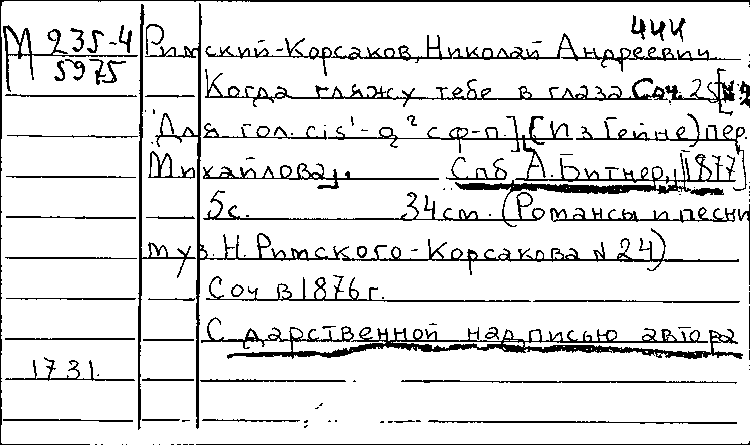 444
М 235-4 Римский-Корсаков, Николай Андреевич
5975
Когда гляжу тебе в глаза Соч. 25 [№
Для гол. cis¹-g² с ф-п.], (Из Гейне) пер.
Михайлова. Спб, А. Битнер, [1877]
5с. 34см. (Романсы и песни
муз. Н. Римского-Корсакова № 24)
Соч в 1876 г.
С дарственной надписью автора
1731.